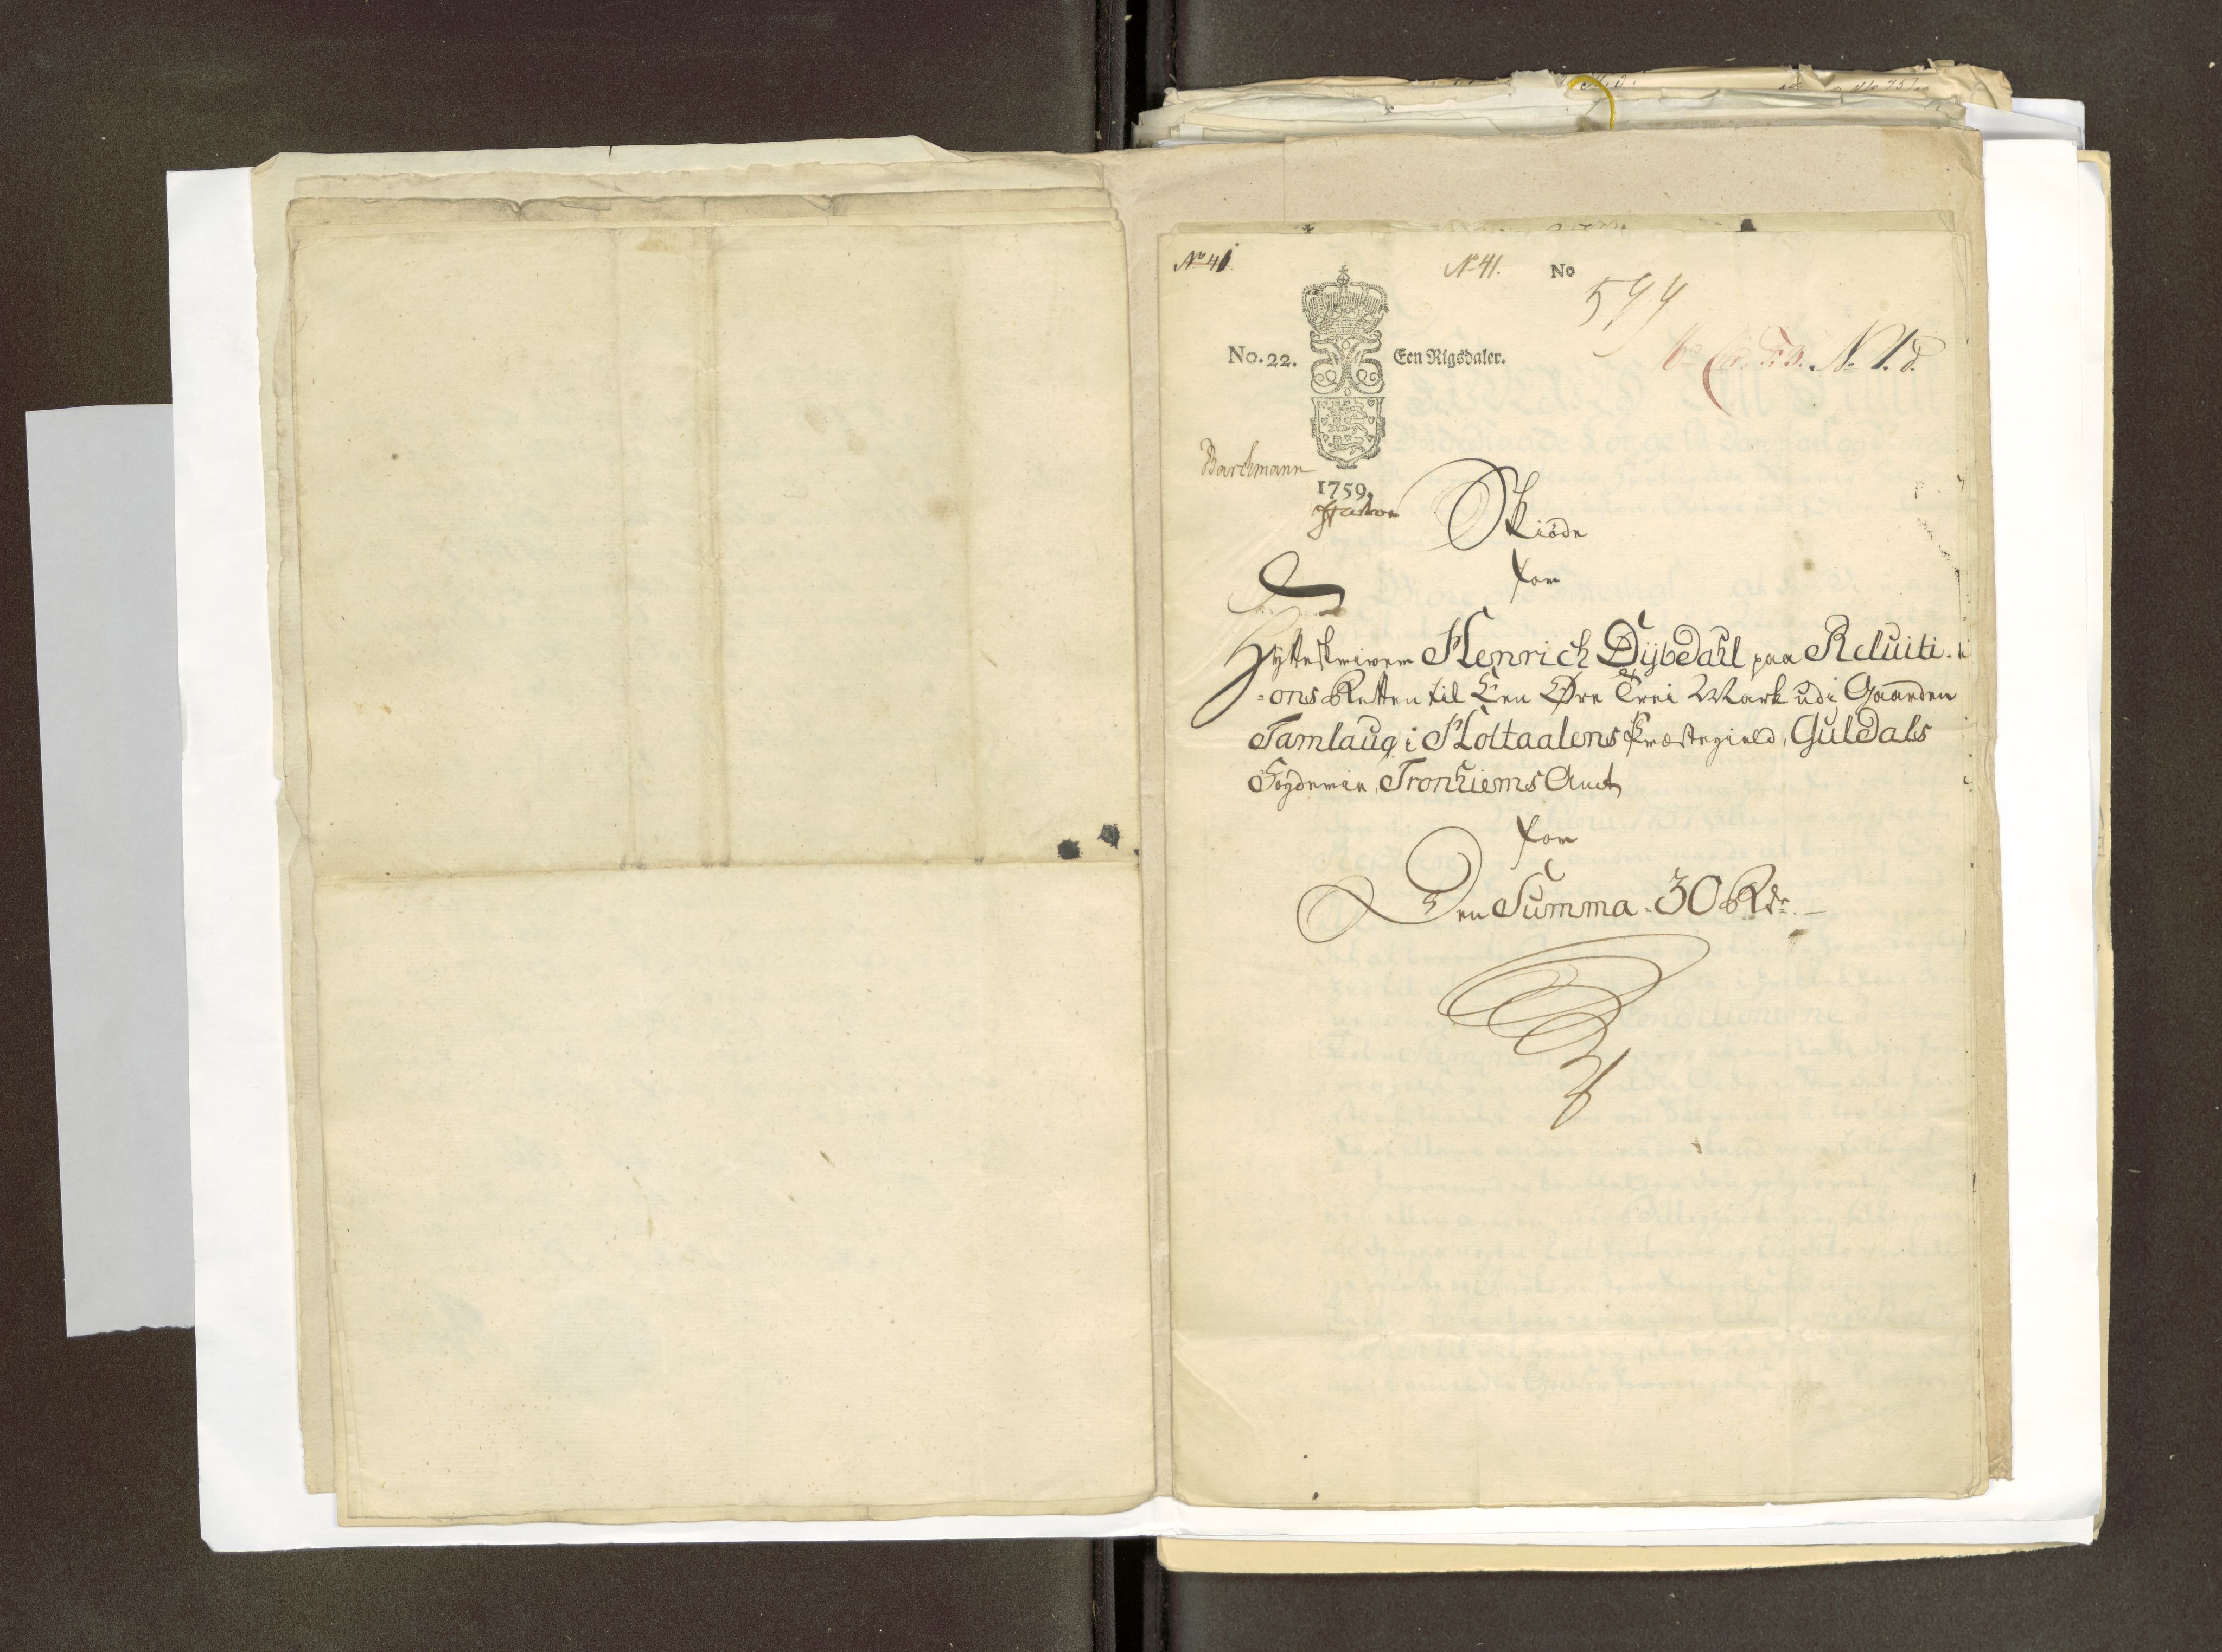 No 41.
No 41.
No
544
No. 22.
Een Rigsdaler.
No 1. d.
Barchmann
1759.
Skiøde
for
Hytteskriver Henrich Dÿbdahl paa Reluiti-
=ons Retten til Een Øre Trei Mark udi Gaarden
Tamlaug i Holtaalens Præstegield, Guldals
Fogderie, Tronhiems Amt,
for
Den Summa 30 Rdr.